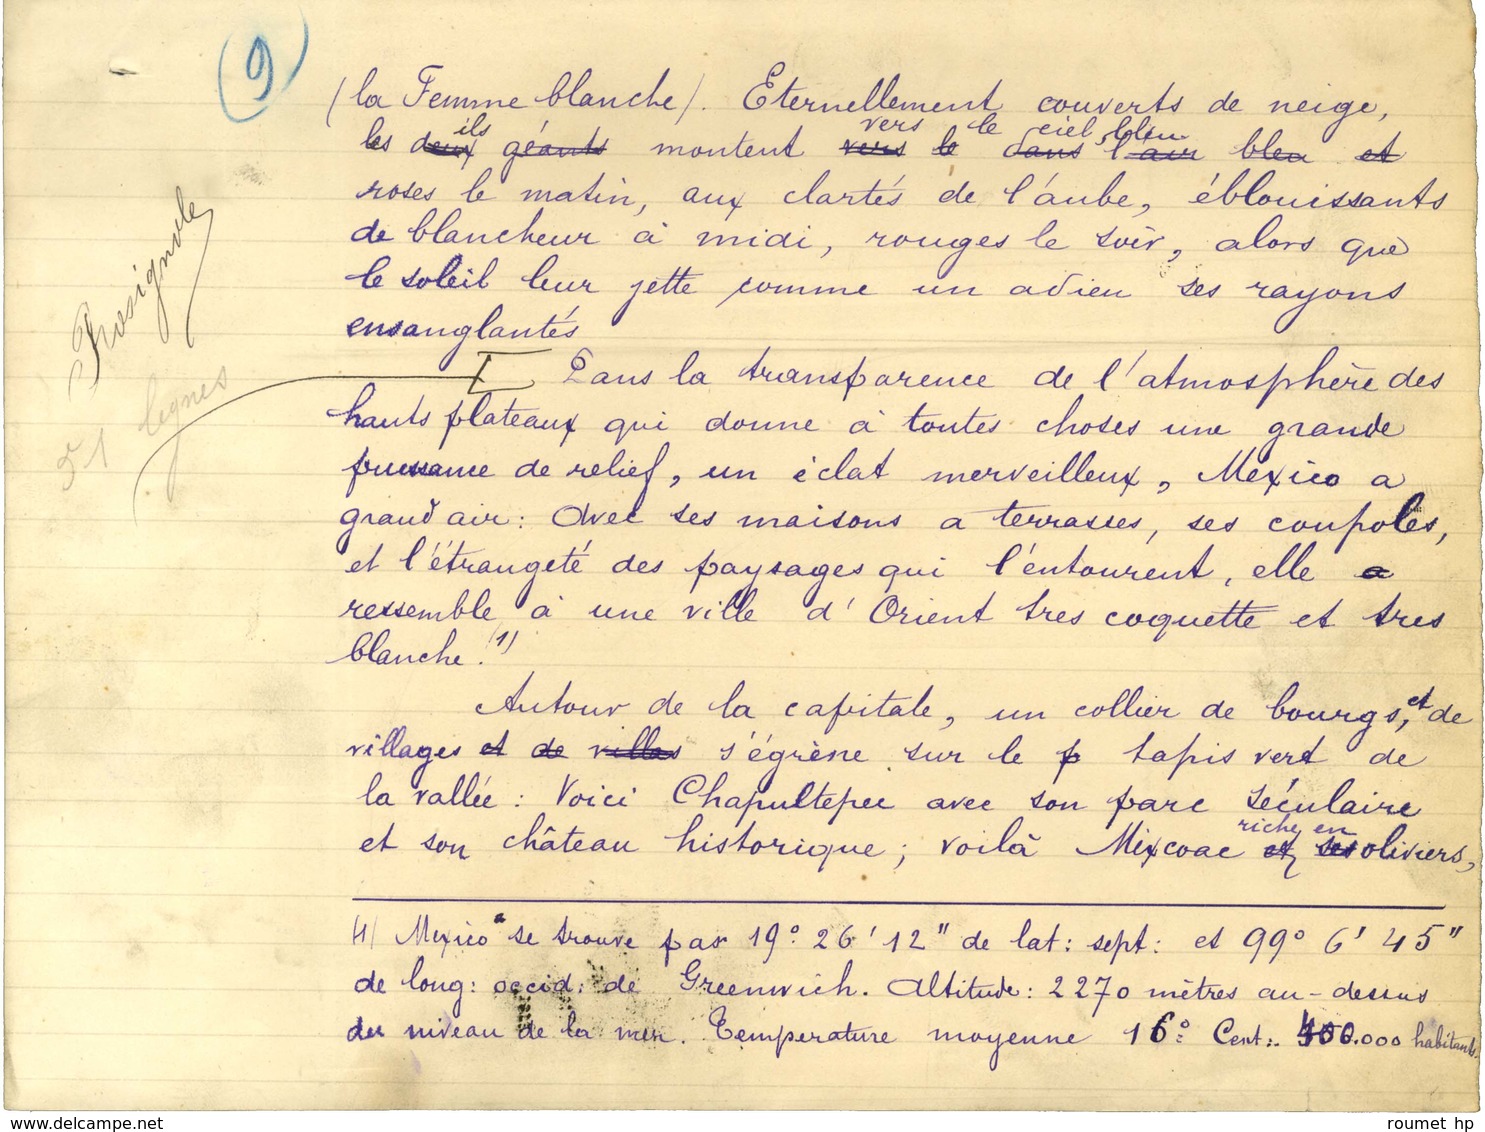 9
(la Femme blanche). Eternellement couverts de neige,
ils vers le ciel bleu
les deux géants montent vers le dans l'air bleu et
roses le matin, aux clartés de l'aube, éblouissants
de blancheur à midi, rouges le soir, alors que
le soleil leur jette comme un adieu ses rayons
ensanglantés
Rosignole
lignes
Dans la transparence de l'atmosphère des
hauts plateaux qui donne à toutes choses une grande
puissance de relief, un éclat merveilleux, Mexico a
grand air: Avec ses maisons a terrasses, ses coupoles,
et l'étrangeté des paysages qui l'entourent, elle a
ressemble à une ville d'Orient tres coquette et tres
blanche.(1)
Autour de la capitale, un collier de bourgs, et de
villages et de villas s'égrène sur le p tapis vert de
la vallée: Voici Chapultepec avec son parc séculaire
riche en
et son château historique; voilà Mixcoac et ses oliviers,
(1) Mexico se trouve par 19° 26' 12" de lat: sept: et 99° 6' 45"
de long: occid: de Greenwich. Altitude: 2270 mètres au-dessus
du niveau de la mer. Température moyenne 16° Cent:. 400.000 habitants.
roumet hp